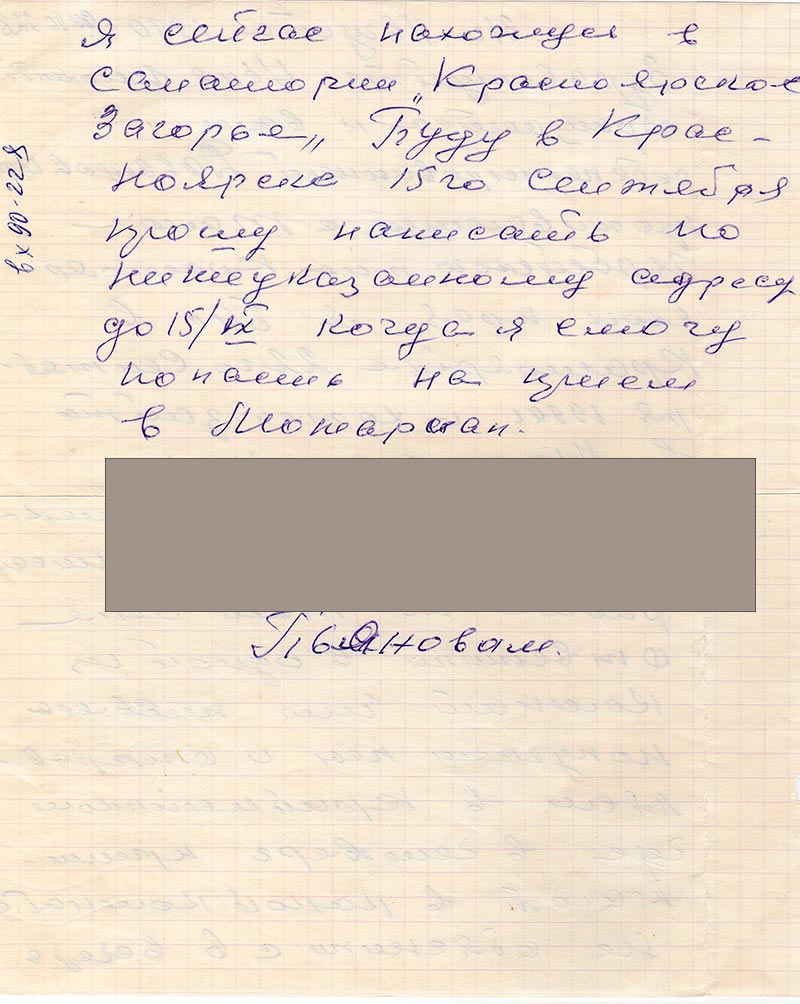 Я сейчас нахожусь в
Санатории „Красноярское
Загорье„ Буду в Крас-
ноярске 15го Сентября
прошу написать по
нижеуказанному адресу
до 15/IX когда я смогу
попасть на прием
в
Пьяновам.
вх 90-228